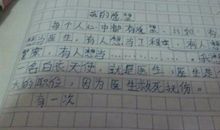 我的愿望
每个人心中都有愿望，比如：有人
想当医生，有人想当工程师，有人想当
警察，有人想当……，我
一名白衣天使，就是医生，医生是
大的职位，因为医生救死扶伤。
有一次